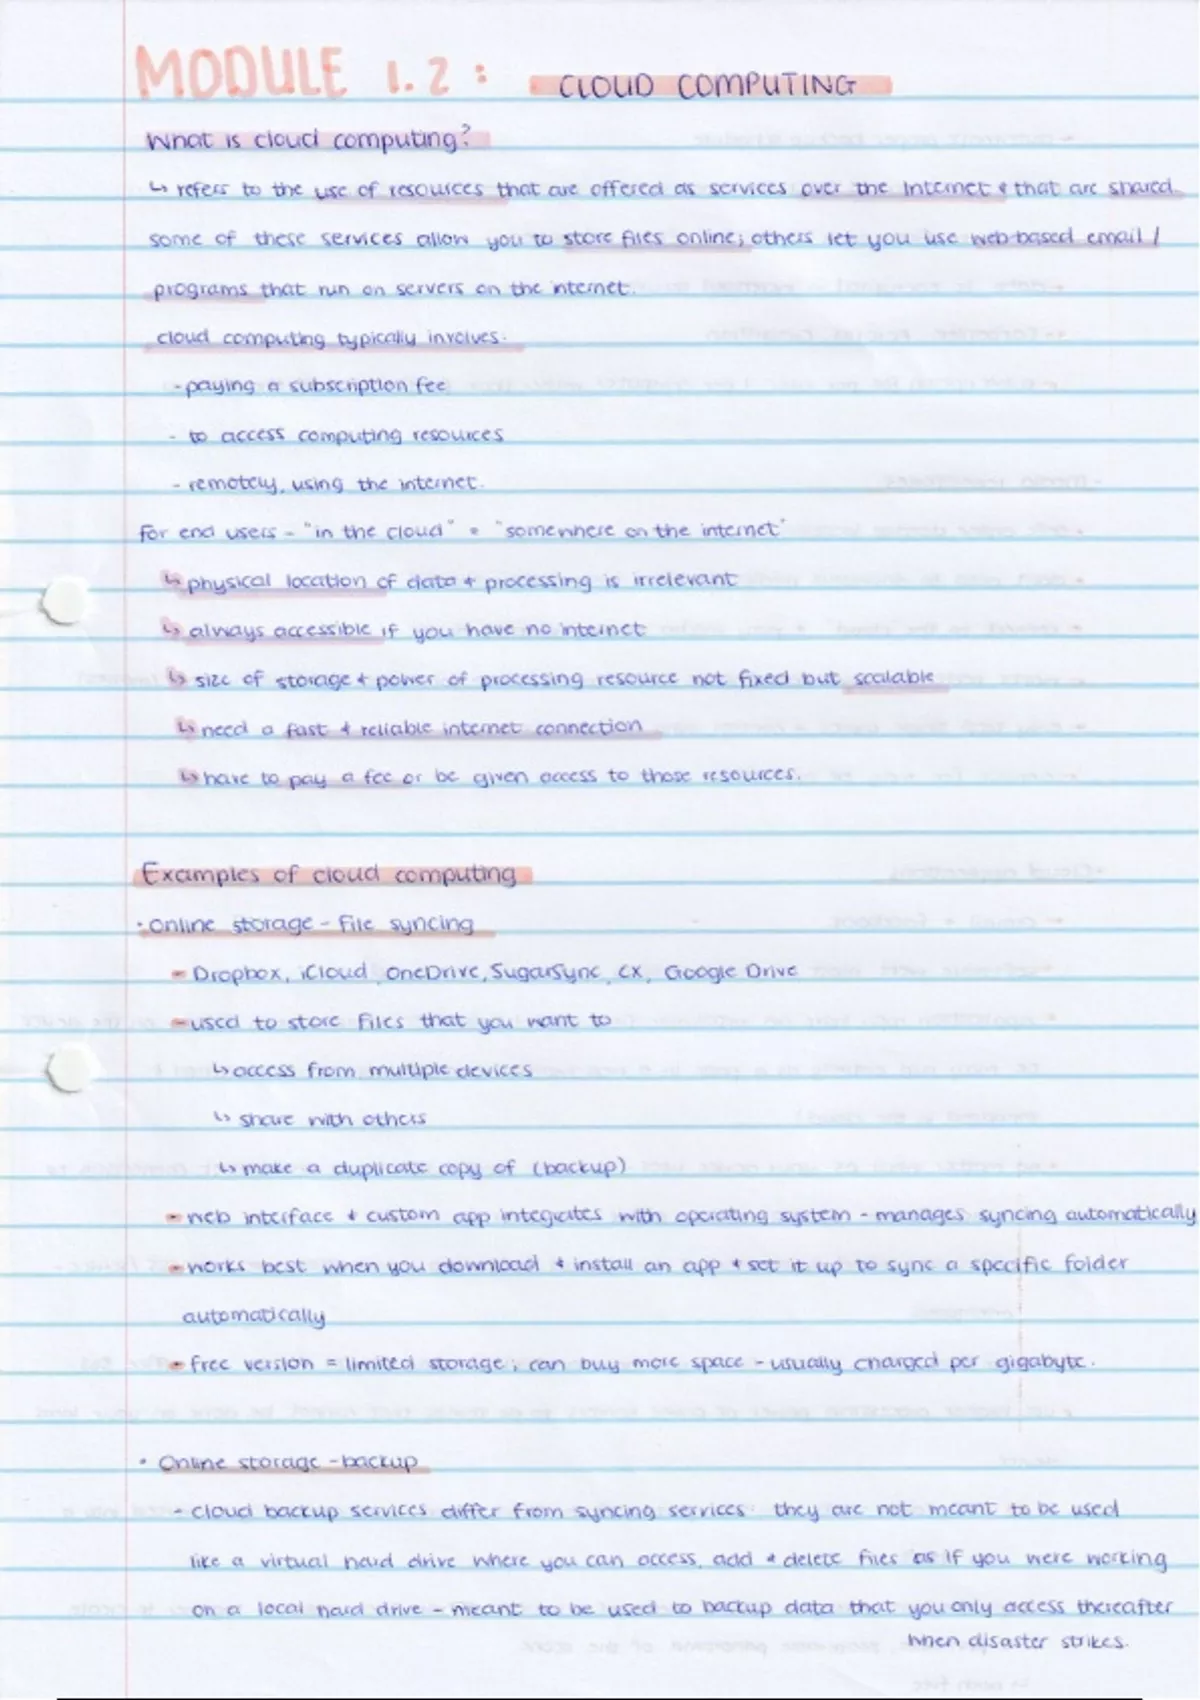 MODULE 1.2: CLOUD COMPUTING
What is cloud computing?
↳ refers to the use of resources that are offered as services over the Internet & that are shared.
some of these services allow you to store files online; others let you use web-based email /
programs that run on servers on the internet.
cloud computing typically involves:
- paying a subscription fee
- to access computing resources
- remotely, using the internet.
for end users - "in the cloud" = "somewhere on the internet"
↳ physical location of data & processing is irrelevant
↳ always accessible if you have no internet
↳ size of storage & power of processing resource not fixed but scalable
↳ need a fast & reliable internet connection
↳ have to pay a fee or be given access to those resources.
Examples of cloud computing
• Online storage - file syncing
- Dropbox, iCloud, OneDrive, SugarSync, CX, Google Drive
- used to store files that you want to
↳ access from multiple devices
↳ share with others
↳ make a duplicate copy of (backup)
- web interface & custom app integrates with operating system - manages syncing automatically
- works best when you download & install an app & set it up to sync a specific folder
automatically
- free version = limited storage; can buy more space - usually charged per gigabyte.
• Online storage - backup
- cloud backup services differ from syncing services: they are not meant to be used
like a virtual hard drive where you can access, add & delete files as if you were working
on a local hard drive - meant to be used to backup data that you only access thereafter
when disaster strikes.